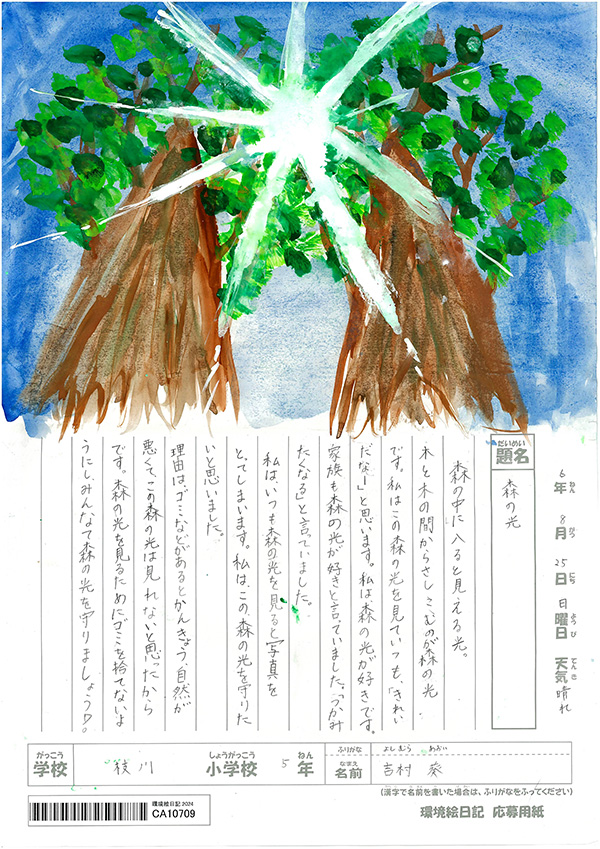 6年 8月 25日 日曜日 天気 晴れ
ねん がつ にち ようび てんき
だいめい
題名
森の光
森の中に入ると見える光。
木と木の間からさしこむのが森の光
です。私はこの森の光を見ていつも、「きれい
だな〜」と思います。私は森の光が好きです。
家族も森の光が好きと言っていました。「つかみ
たくなる」と言っていました。
私は、いつも森の光を見ると写真を
とってしまいます。私は、この森の光を守りた
いと思いました。
理由は、ゴミなどがあるとかんきょう、自然が
悪くて、この森の光は見れないと思ったから
です。森の光を見るためにゴミを捨てないよ
うにし、みんなで森の光を守りましょう♡。
がっこう
学校
枝川
しょうがっこう
小学校
5
ねん
年
ふりがな
よしむら あおい
なまえ
名前
吉村 葵
(漢字で名前を書いた場合は、ふりがなをふってください)
環境絵日記 2024
CA10709
環境絵日記 応募用紙